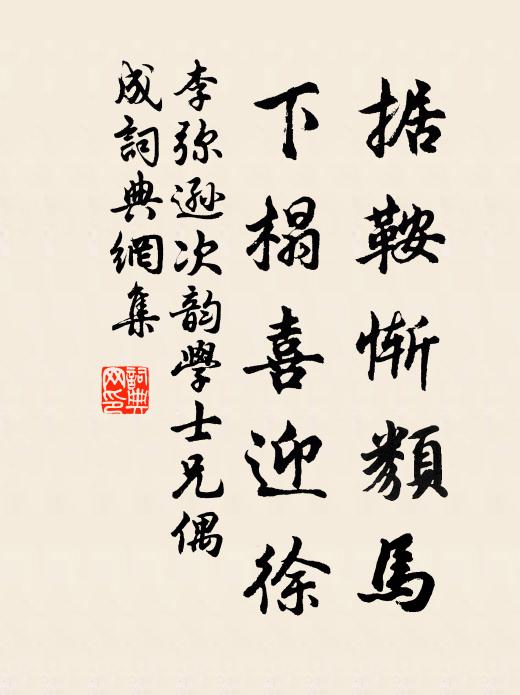 据鞍惭類馬
下榻喜迎徐
李弥遜次韵學士兄偶
成詞典網集
詞典網印